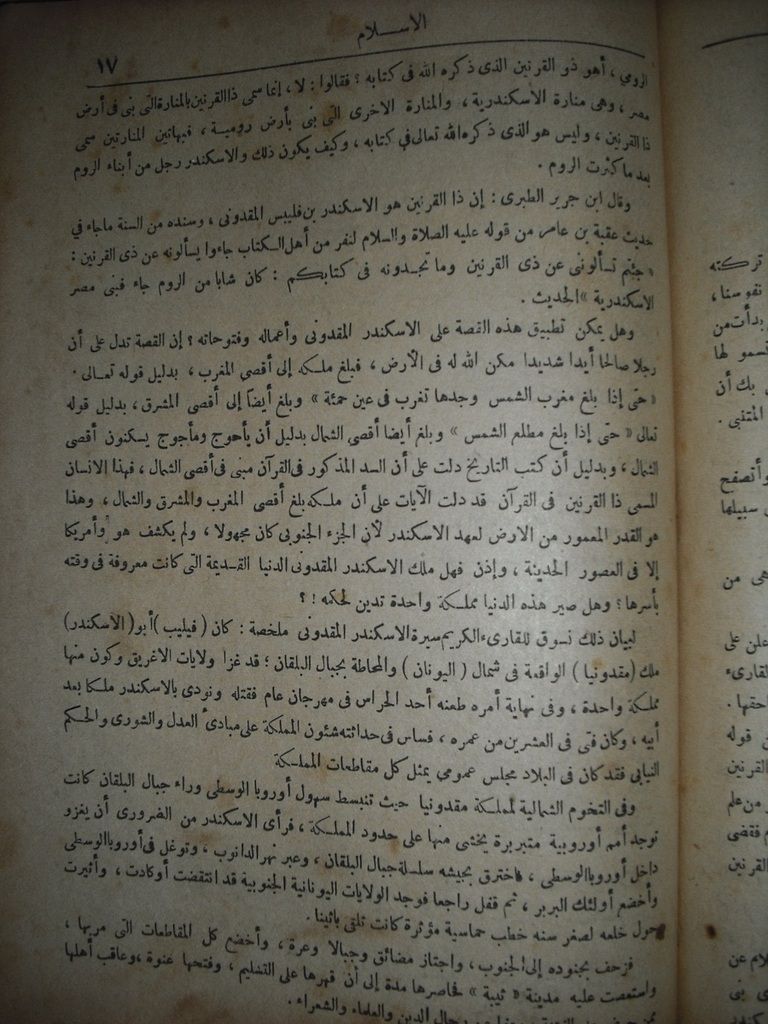 الاســـلام
١٧
الرومي ، أهو ذو القرنين الذى ذكره الله فى كتابه ؟ فقالوا : لا ، إنما سمى ذا القرنين بالمنارة التى بنى فى أرض
مصر ، وهى منارة الاسكندرية ، والمنارة الاخرى التى بنى بأرض رومية ، فبهاتين المنارتين سمى
ذا القرنين ، وليس هو الذى ذكره الله تعالى فى كتابه ، وكيف يكون ذلك والاسكندر رجل من أبناء الروم
بعد ما كثرت الروم .
وقال ابن جرير الطبرى : إن ذا القرنين هو الاسكندر بن فليبس المقدونى ، وسنده من السنة ماجاء في
حديث عقبة بن عامر من قوله عليه الصلاة والسلام لنفر من أهل الكتاب جاءوا يسألونه عن ذى القرنين :
« جئتم تسألونى عن ذى القرنين وما تجدونه فى كتابكم : كان شابا من الروم جاء فبنى مصر
الاسكندرية » الحديث .
وهل يمكن تطبيق هذه القصة على الاسكندر المقدونى وأعماله وفتوحاته ؟ إن القصة تدل على أن
رجلا صالحا أيدا شديدا مكن الله له فى الأرض ، فبلغ ملكه إلى أقصى المغرب ، بدليل قوله تعالى .
« حتى إذا بلغ مغرب الشمس وجدها تغرب فى عين حمئة » وبلغ أيضا إلى أقصى المشرق ، بدليل قوله
تعالى « حتى إذا بلغ مطلع الشمس » وبلغ أيضا أقصى الشمال بدليل أن يأجوج ومأجوج يسكنون أقصى
الشمال ، وبدليل أن كتب التاريخ دلت على أن السد المذكور فى القرآن مبنى فى أقصى الشمال ، فهذا الانسان
المسمى ذا القرنين فى القرآن قد دلت الآيات على أن ملكه بلغ أقصى المغرب والمشرق والشمال ، وهذا
هو القدر المعمور من الارض لعهد الاسكندر لأن الجزء الجنوبى كان مجهولا ، ولم يكشف هو وأمريكا
إلا فى العصور الحديثة ، وإذن فهل ملك الاسكندر المقدونى الدنيا القديمة التى كانت معروفة فى وقته
بأسرها ؟ وهل صير هذه الدنيا مملكة واحدة تدين لحكمه ! ؟
لبيان ذلك نسوق للقارىء الكريم سيرة الاسكندر المقدونى ملخصة : كان ( فيليب ) أبو ( الاسكندر )
ملك ( مقدونيا ) الواقعة فى شمال ( اليونان ) والمحاطة بجبال البلقان ؛ قد غزا ولايات الاغريق وكون منها
مملكة واحدة ، وفى نهاية أمره طعنه أحد الحراس فى مهرجان عام فقتله ونودى بالاسكندر ملكا بعد
أبيه ، وكان فتى فى العشرين من عمره ، فساس فى حداثته شئون المملكة على مبادئ العدل والشورى والحكم
النيابى فقد كان فى البلاد مجلس عمومى يمثل كل مقاطعات المملكة
وفى التخوم الشمالية لمملكة مقدونيا حيث تنبسط سهول أوروبا الوسطى وراء جبال البلقان كانت
توجد أمم أوروبية متبربرة يخشى منها على حدود المملكة ، فرأى الاسكندر من الضرورى أن يغزو
داخل أوروبا الوسطى ، فاخترق بجيشه سلسلة جبال البلقان ، وعبر نهر الدانوب ، وتوغل فى أوروبا الوسطى
وأخضع أولئك البربر ، ثم قفل راجعا فوجد الولايات اليونانية الجنوبية قد انتقضت أو كادت ، وأثيرت
حول خلعه لصغر سنه خطب حماسية مؤثرة كانت تلقى بأثينا .
فزحف بجنوده إلى الجنوب ، واجتاز مضائق وجبالا وعرة ، وأخضع كل المقاطعات التى مر بها ،
واستعصت عليه مدينة « ثيبة » فحاصرها مدة إلى أن قهرها على التسليم ، وفتحها عنوة ، وعاقب أهلها
رجال الدين والعلماء والشعراء .
تركته
نفوسنا ،
بدأت من
تسمو لها
بك أن
المتنبى .
وأتصفح
سبيلها
هى من
علن على
لقارىء
احقها .
قوله
القرنين
من علم
فقضى
القرنين
لام عن
بنى